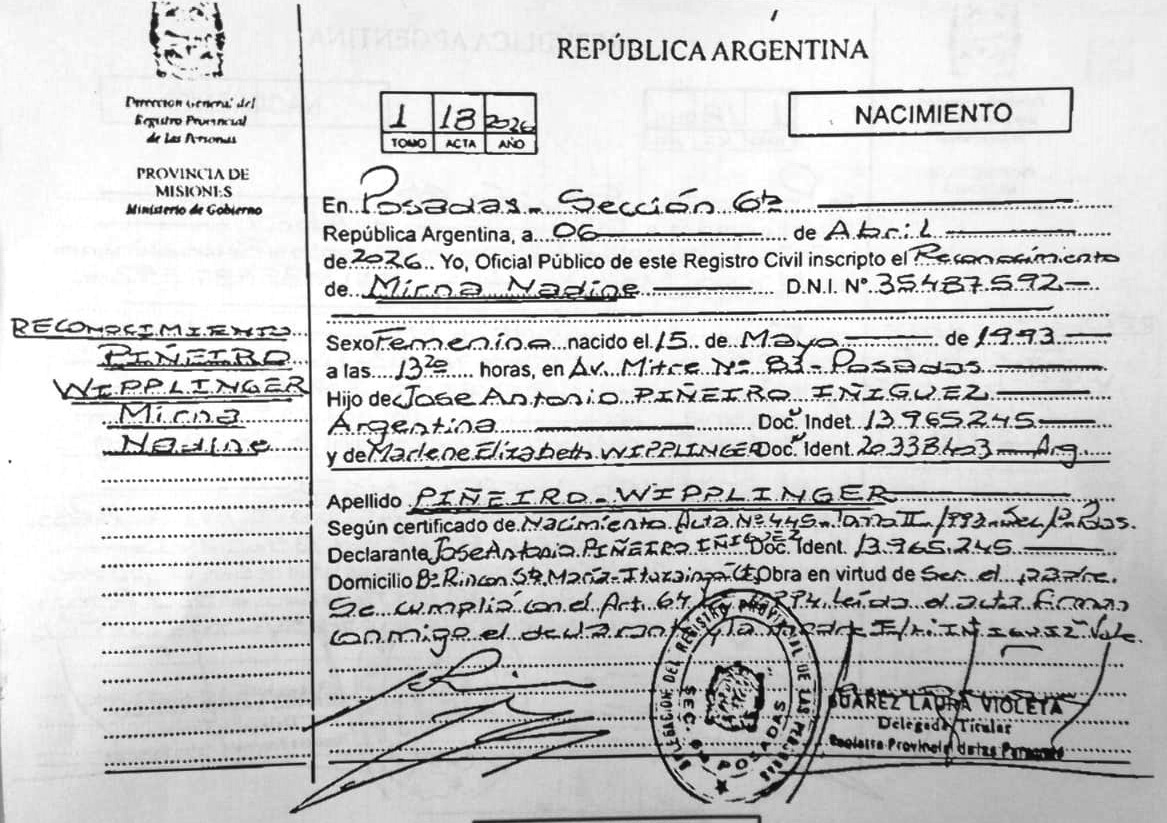 REPÚBLICA ARGENTINA
Dirección General del
Registro Provincial
de Las Personas
PROVINCIA DE
MISIONES
Ministerio de Gobierno
1 18 2026
TOMO ACTA AÑO
NACIMIENTO
En Posadas - Sección 6ta
República Argentina, a 06 de Abril
de 2026. Yo, Oficial Público de este Registro Civil inscripto el Reconocimiento
de Mirna Nadine D.N.I. Nº 35487592
RECONOCIMIENTO
PIÑEIRO
WIPPLINGER
Mirna
Nadine
Sexo Femenino nacido el 15 de Mayo de 1993
a las 13 horas, en Av. Mitre Nº 83 - Posadas
Hijo de Jose Antonio PIÑEIRO IÑIGUEZ
Argentina Doc. Indet. 13.965.245
y de Marlene Elizabeth WIPPLINGER Doc. Ident. 20338403 Arg.
Apellido PIÑEIRO - WIPPLINGER
Según certificado de Nacimiento Acta Nº 445 - Tomo II
Declarante Jose Antonio PIÑEIRO IÑIGUEZ Doc. Ident. 13.965.245
Domicilio Bº Rincon Sta. Maria - Ituzaingo Obra en virtud de Ser el padre.
Se cumplió con el Art. 64 Leído el acta firman
conmigo el declarante y la madre E/L: IÑIGUEZ" Vale.
DELEGACION DEL REGISTRO PROVINCIAL DE LAS PERSONAS
SEC. 6ª POSADAS
SUAREZ LAURA VIOLETA
Delegada Titular
Provincial de las Personas